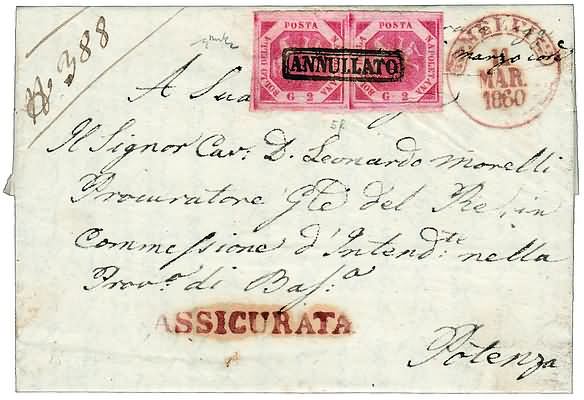 N° 388
POSTA
BOLLO DELLA
NAPOLETANA
G 2
POSTA
BOLLO DELLA
NAPOLETANA
G 2
ANNULLATO
11
MAR.
1860
marzo
A Sua
Il Signor Cav: D. Leonardo Morelli
Procuratore Gle del Re, in
Commessione d'Intendte nella
Prova di Basa
ASSICURATA
Potenza